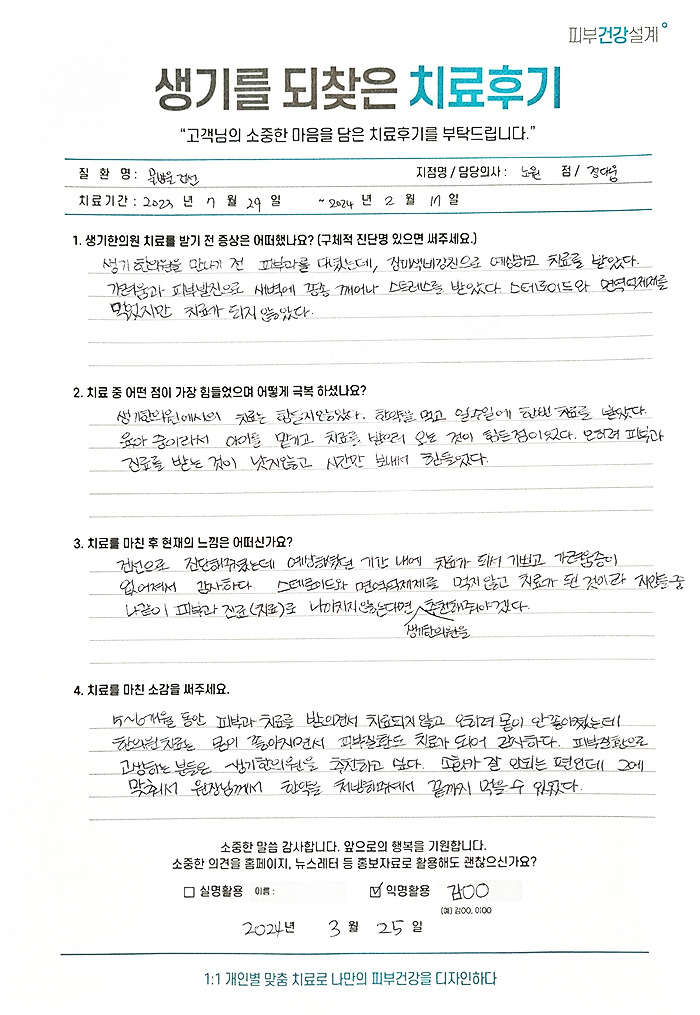 피부건강설계
생기를 되찾은 치료후기
"고객님의 소중한 마음을 담은 치료후기를 부탁드립니다."
질 환 명 : 물방울건선 지점명 / 담당의사 : 노원 점 /
치료기간 : 2023 년 7 월 29 일 ~ 2024 년 2 월 17 일
1. 생기한의원 치료를 받기 전 증상은 어떠했나요? (구체적 진단명 있으면 써주세요.)
생기한의원을 만나기 전 피부과를 다녔는데, 장미색비강진으로 예상하고 치료를 받았다.
가려움과 피부발진으로 새벽에 종종 깨어나 스트레스를 받았다. 스테로이드와 면역억제제를
먹었지만 치료가 되지 않았다.
2. 치료 중 어떤 점이 가장 힘들었으며 어떻게 극복 하셨나요?
생기한의원에서의 치료는 힘들지않았다. 한약을 먹고 일주일에 한번 치료를 받았다.
육아 중이라서 아이를 맡기고 치료를 받으러 오는 것이 힘든점이었다. 오히려 피부과
진료를 받는 것이 낫지않고 시간만 보내서 힘들었다.
3. 치료를 마친 후 현재의 느낌은 어떠신가요?
건선으로 진단해주셨는데 예상해줬던 기간 내에 치료가 되서 기쁘고 가려움증이
없어져서 감사하다. 스테로이드와 면역억제제를 먹지않고 치료가 된 것이라 지인들 중
나같이 피부과 진료(치료)로 나아지지않는다면 추천해줘야겠다.
생기한의원을
4. 치료를 마친 소감을 써주세요.
5~6개월 동안 피부과 치료를 받으면서 치료되지않고 오히려 몸이 안좋아졌는데
한의원치료는 몸이 좋아지면서 피부질환도 치료가 되어 감사하다. 피부질환으로
고생하는 분들은 생기한의원을 추천하고 싶다. 소화가 잘 안되는 편인데 그에
맞춰서 원장님께서 한약을 처방해주셔서 끝까지 먹을 수 있었다.
소중한 말씀 감사합니다. 앞으로의 행복을 기원합니다.
소중한 의견을 홈페이지, 뉴스레터 등 홍보자료로 활용해도 괜찮으신가요?
실명활용 이름 : 익명활용 김OO
(예) 김OO, 이OO
2024년 3 월 25 일
1:1 개인별 맞춤 치료로 나만의 피부건강을 디자인하다